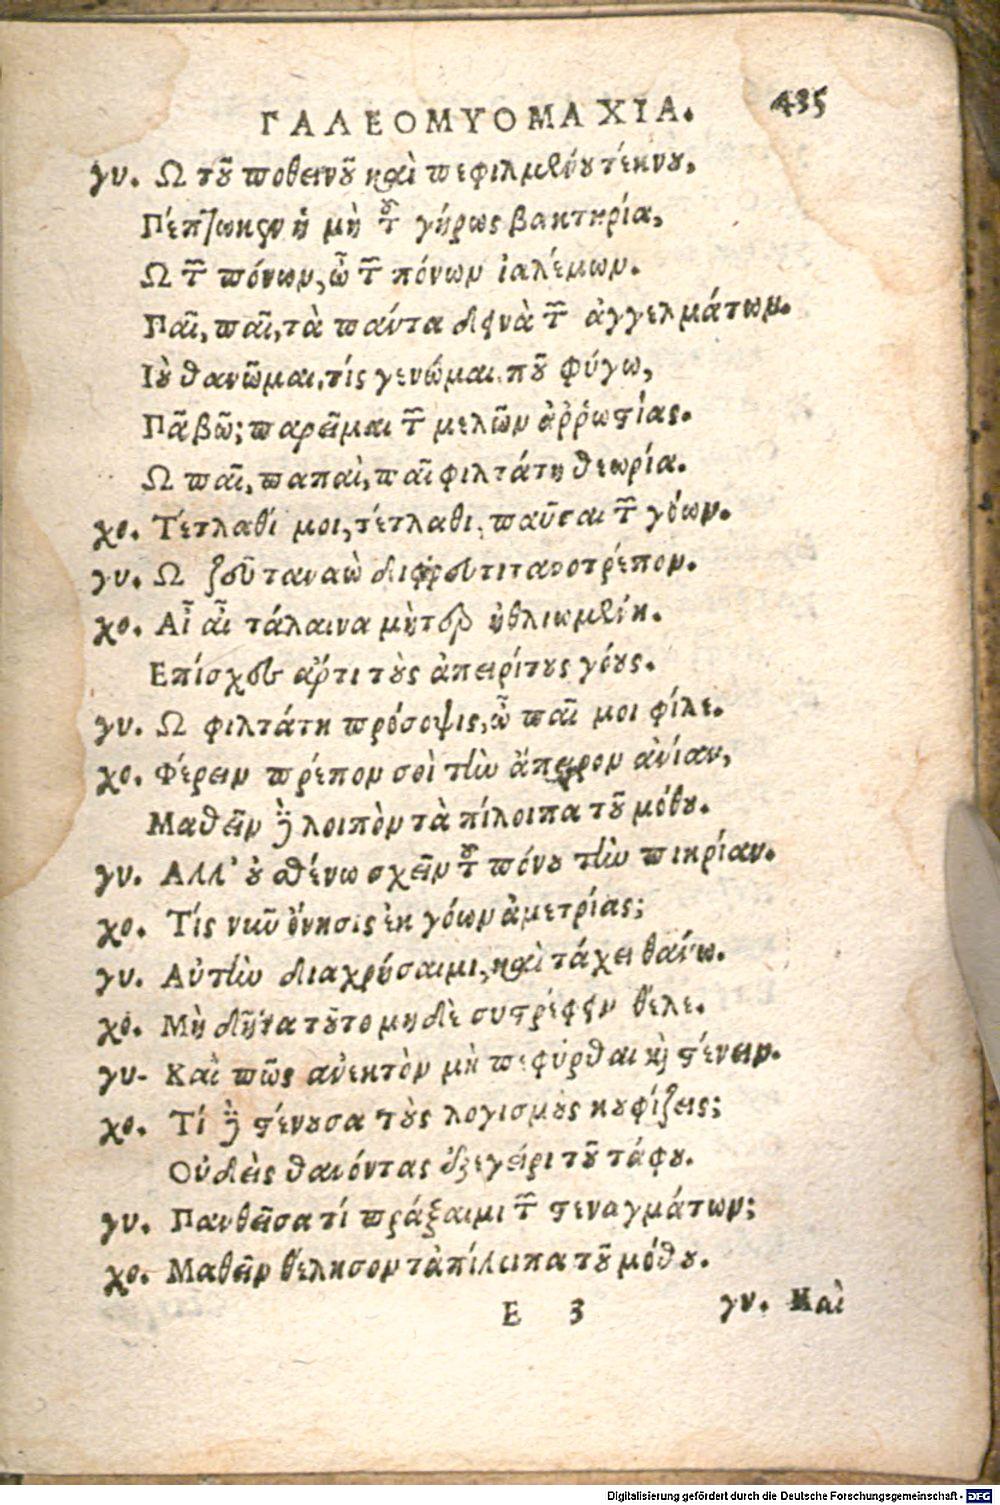 ΓΑΛΕΟΜΥΟΜΑΧΙΑ. 435
γυ. Ω τοῦ ποθεινοῦ καὶ πεφιλμένου τέκνου,
Πέπτωκεν ἡ μὴ τοῦ γήρως βακτηρία,
Ω τῶν πόνων, ὦ τῶν πόνων ἰαλέμων.
Παῖ, παῖ, τὰ πάντα δεινὰ τῶν ἀγγελμάτων.
Ιοὺ θανῶμαι, τίς γενῶμαι, ποῦ φύγω,
Πᾶ βῶ; παρεῖμαι τῶν μελῶν ἀῤῥωστίας.
Ω παῖ, παπαὶ, παῖ φιλτάτη θεωρία.
χο. Τέτλαθί μοι, τέτλαθι, παῦσαι τῶν γόων.
γυ. Ω ζοῦν ταναὼ
χο. Αἲ αἲ τάλαινα μῆτερ ἠθλιωμένη.
Επίσχες ἄρτι τοὺς ἀπειρίτους γόους.
γυ. Ω φιλτάτη πρόσοψις, ὦ παῖ μοι φίλε.
χο. Φέρειν πρέπον σοὶ τὴν ἄπειρον ἀνίαν,
Μαθεῖν δὲ λοιπὸν τὰ πίλοιπα τοῦ μόθου.
γυ. Αλλ' οὐ σθένω σχεῖν τοῦ πόνου τὴν πικρίαν.
χο. Τίς νῦν ὄνησις ἐκ γόων ἀμετρίας;
γυ. Αὐτὴν διαχρήσαιμι, καὶ τάχει θάνω.
χο. Μὴ δῆτα τοῦτο μηδὲ συστρέφειν θέλε.
γυ- Καὶ πῶς ἀνεκτὸν μὴ πεφύρθαι καὶ στένειν.
χο. Τί δὲ στένουσα τοὺς λογισμοὺς κουφίζεις;
Οὐδεὶς θανόντας ἐξεγείρει τοῦ τάφου.
γυ. Πανθεῖσα τί πράξαιμι τῶν στεναγμάτων;
χο. Μαθεῖν θέλησον τὰ πίλοιπα τοῦ μόθου.
E 3 γυ. Καὶ
Digitalisierung gefördert durch die Deutsche Forschungsgemeinschaft - DFG